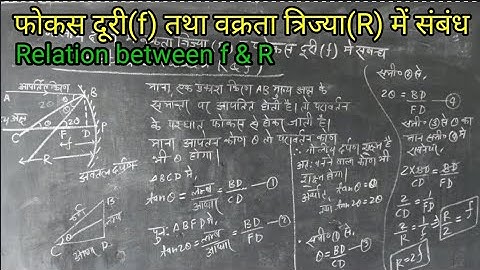 फोकस दूरी(f) तथा वक्रता त्रिज्या(R) में संबंध
Relation between f & R
दूरी (f) में सम्बन्ध
आपतित किरण
A
B
θ
2θ
C
F
D
P
f
R
अवतल दर्पण
B
C
D
θ
लम्ब
माना, एक प्रकाश किरण AB मुख्य अक्ष के
समान्तर पर आपतित होती है। तो परावर्तन
के पश्चात फोकस से होकर जाती है।
माना आपतन कोण θ तो परावर्तन कोण
भी θ होगा।
ΔBCD में,
tanθ = लम्ब/आधार = BD/CD —①
पुनः ΔBFD में,
tan2θ = लम्ब/आधार = BD/FD —②
tanθ = θ
tan2θ = 2θ
समी० ① से,
θ = BD/CD —③
समी० ② से,
2θ = BD/FD —④
समी० ③ से θ का
मान समी० ④ में
2×BD/CD = BD/FD
2/CD = 1/FD
2/R = 1/f
R/2 = f
R = 2f